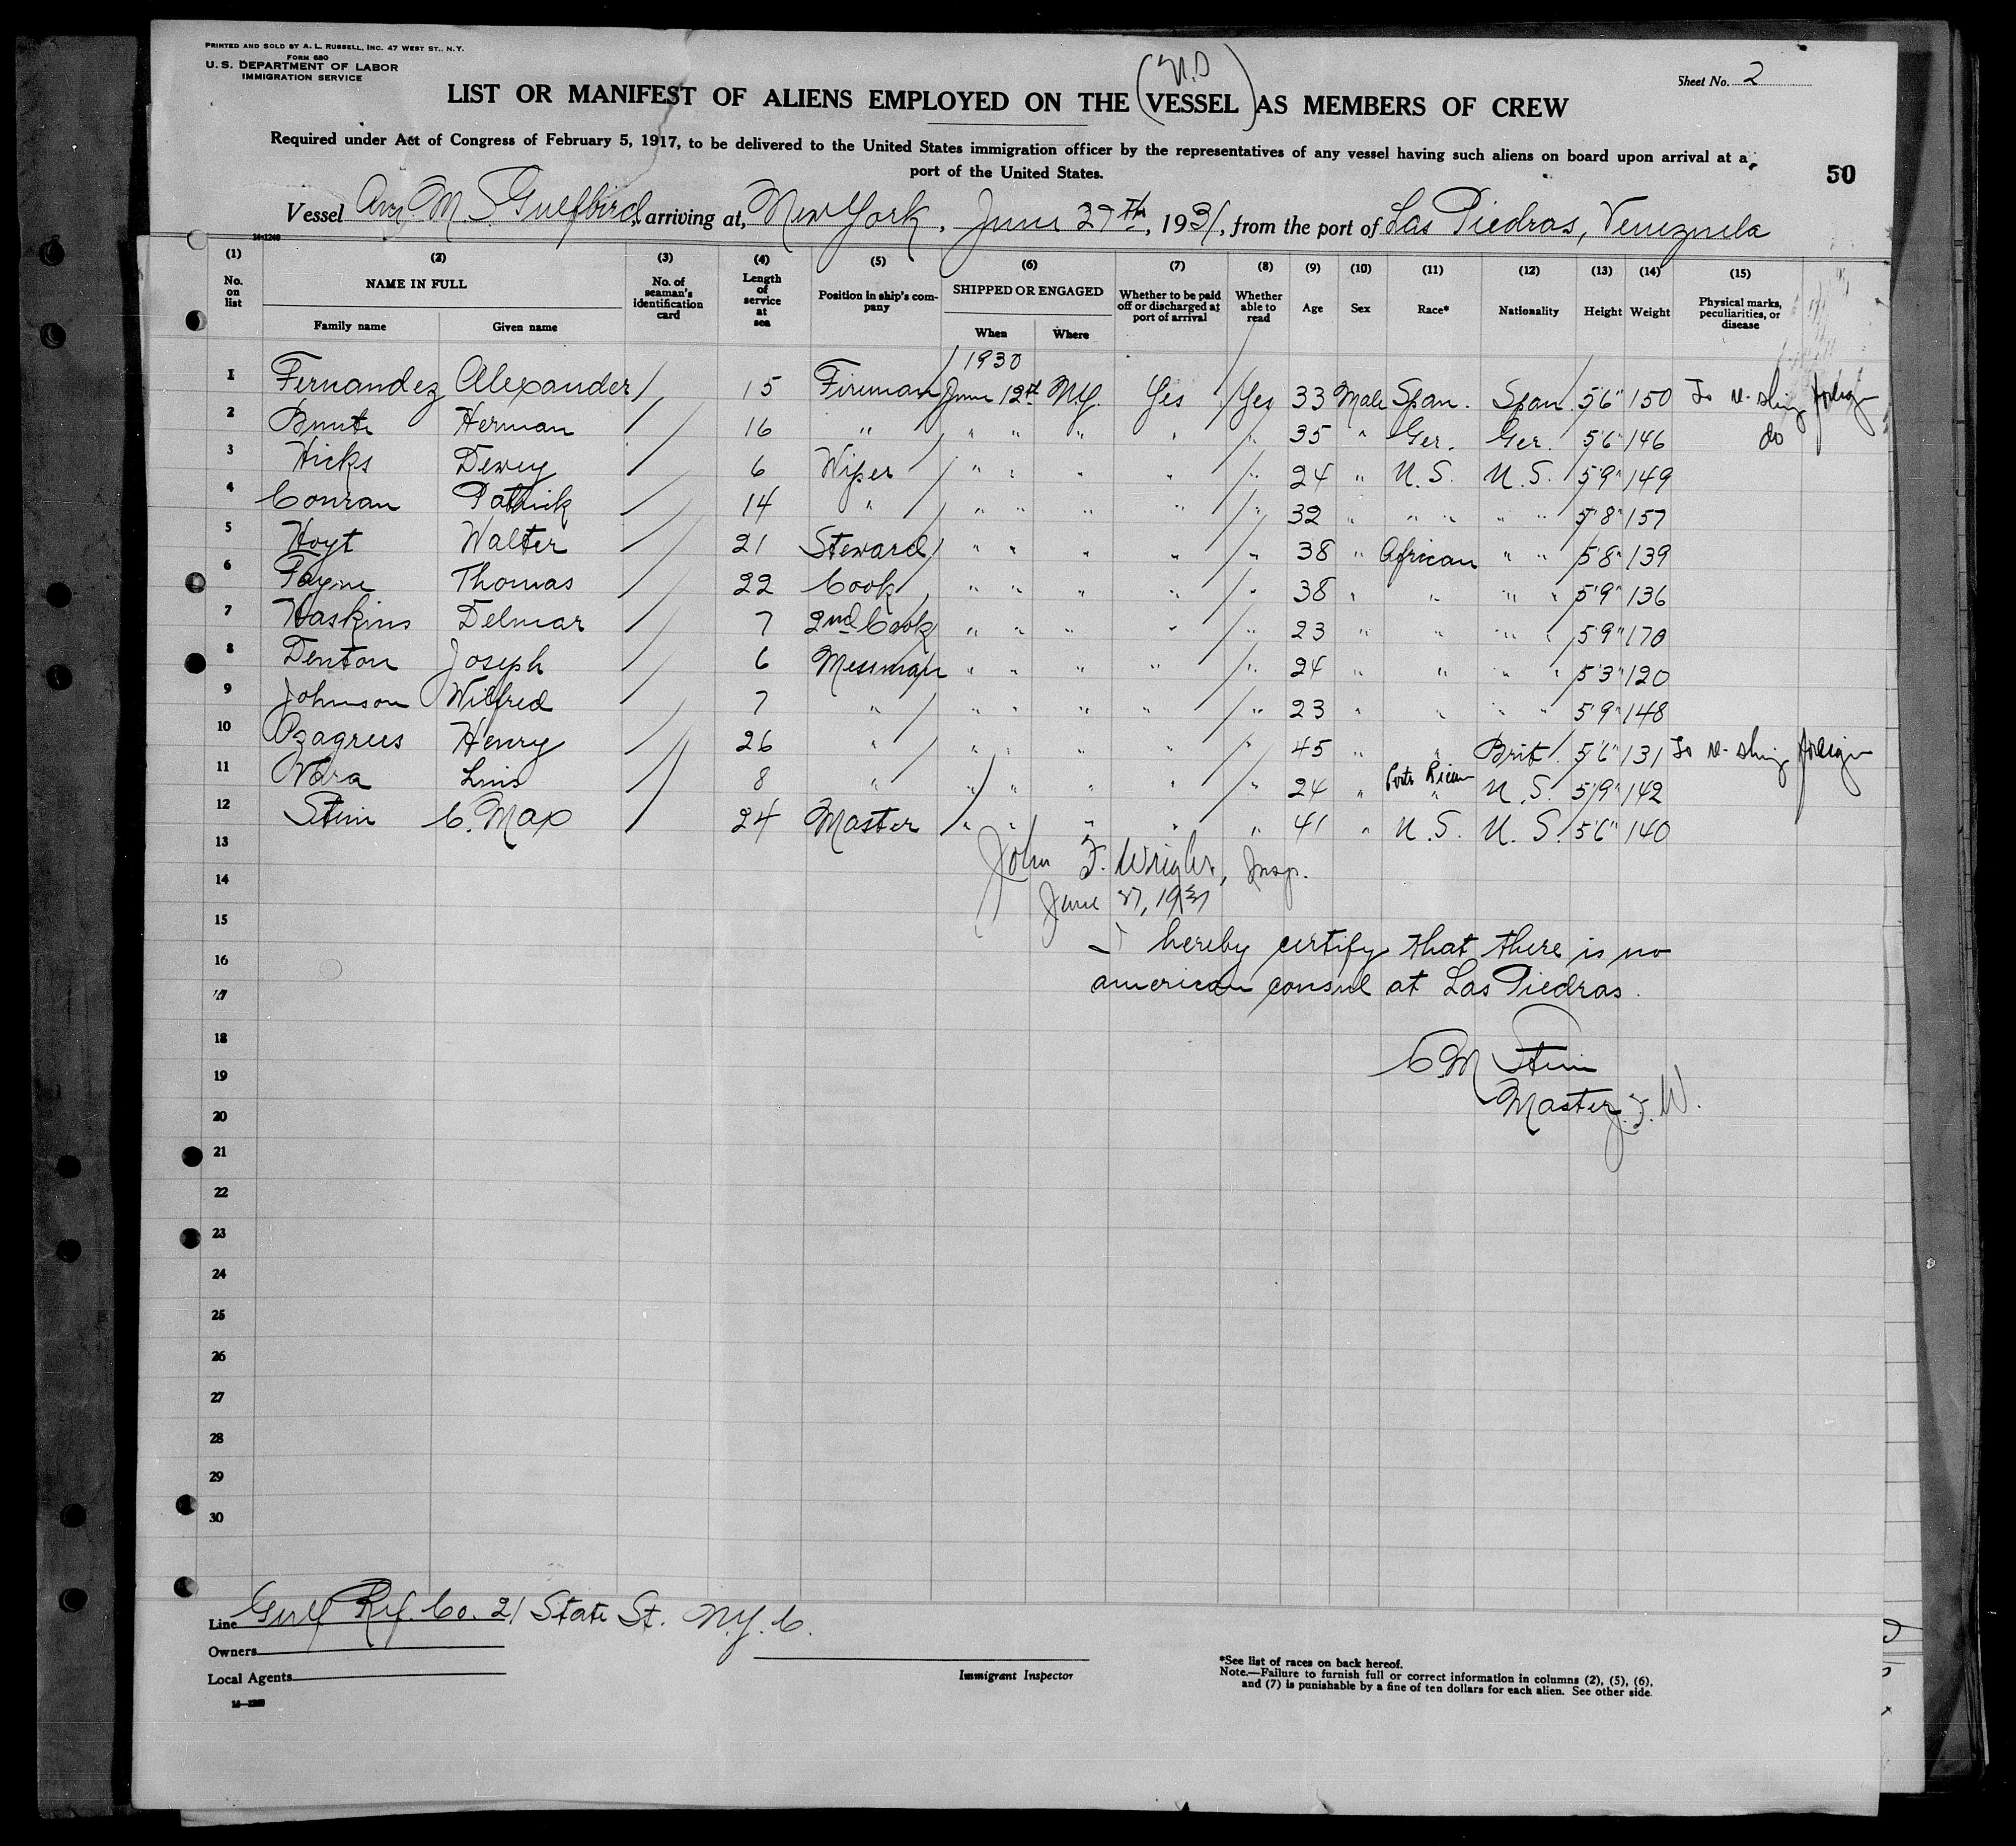 PRINTED AND SOLD BY A. L. RUSSELL, INC. 47 WEST ST., N.Y.
FORM 680
U. S. DEPARTMENT OF LABOR
IMMIGRATION SERVICE
Sheet No. 2
LIST OR MANIFEST OF ALIENS EMPLOYED ON THE (VESSEL) AS MEMBERS OF CREW
Required under Act of Congress of February 5, 1917, to be delivered to the United States immigration officer by the representatives of any vessel having such aliens on board upon arrival at a
port of the United States.
50
Vessel Am M.S Gulfbird, arriving at, New York, June 27th, 1931, from the port of Las Piedras, Venezuela
14-1240
(1) (2) (3) (4) (5) (6) (7) (8) (9) (10) (11) (12) (13) (14) (15)
No. on list NAME IN FULL Family name Given name No. of seaman's identification card Length of service at sea Position in ship's company SHIPPED OR ENGAGED When Where Whether to be paid off or discharged at port of arrival Whether able to read Age Sex Race* Nationality Height Weight Physical marks, peculiarities, or disease
1930
1 Fernandez Alexander 15 Fireman June 12th N.Y. Yes Yes 33 Male Span. Span. 5'6" 150 To re-ship foreign
2 Herman 16 " " " " " " 35 " Ger. Ger. 5'6" 146 do
3 Hicks Dewey 6 Wiper " " " " " 24 " U.S. U.S. 5'9" 149
4 Conran Patrick 14 " " " " " " 32 " " " " " 5'8" 157
5 Hoyt Walter 21 Steward " " " " " 38 " African " " 5'8" 139
6 Payne Thomas 22 Cook " " " " " 38 " " " " 5'9" 136
7 Haskins Delmar 7 2nd Cook " " " " " 23 " " " " 5'9" 170
8 Denton Joseph 6 Messman " " " " " 24 " " " " 5'3" 120
9 Johnson Wilfred 7 " " " " " " 23 " " " " 5'9" 148
10 Henry 26 " " " " " " 45 " " Brit. 5'6" 131 To re-ship foreign
11 Luis 8 " " " " " " 24 " Porto Rican " U.S. 5'9" 142
12 Stein C. Max 24 Master " " " " " 41 " U.S. U.S. 5'6" 140
13
14
15
16
17
18
19
20
21
22
23
24
25
26
27
28
29
30
John F. Insp.
June 27, 1931
I hereby certify that there is no
american consul at Las Piedras.
C.M Stein
Master
J.F.W.
Line Gulf Ref. Co. 21 State St. N.Y.C.
Owners
Local Agents
Immigrant Inspector
*See list of races on back hereof.
Note.—Failure to furnish full or correct information in columns (2), (5), (6),
and (7) is punishable by a fine of ten dollars for each alien. See other side.